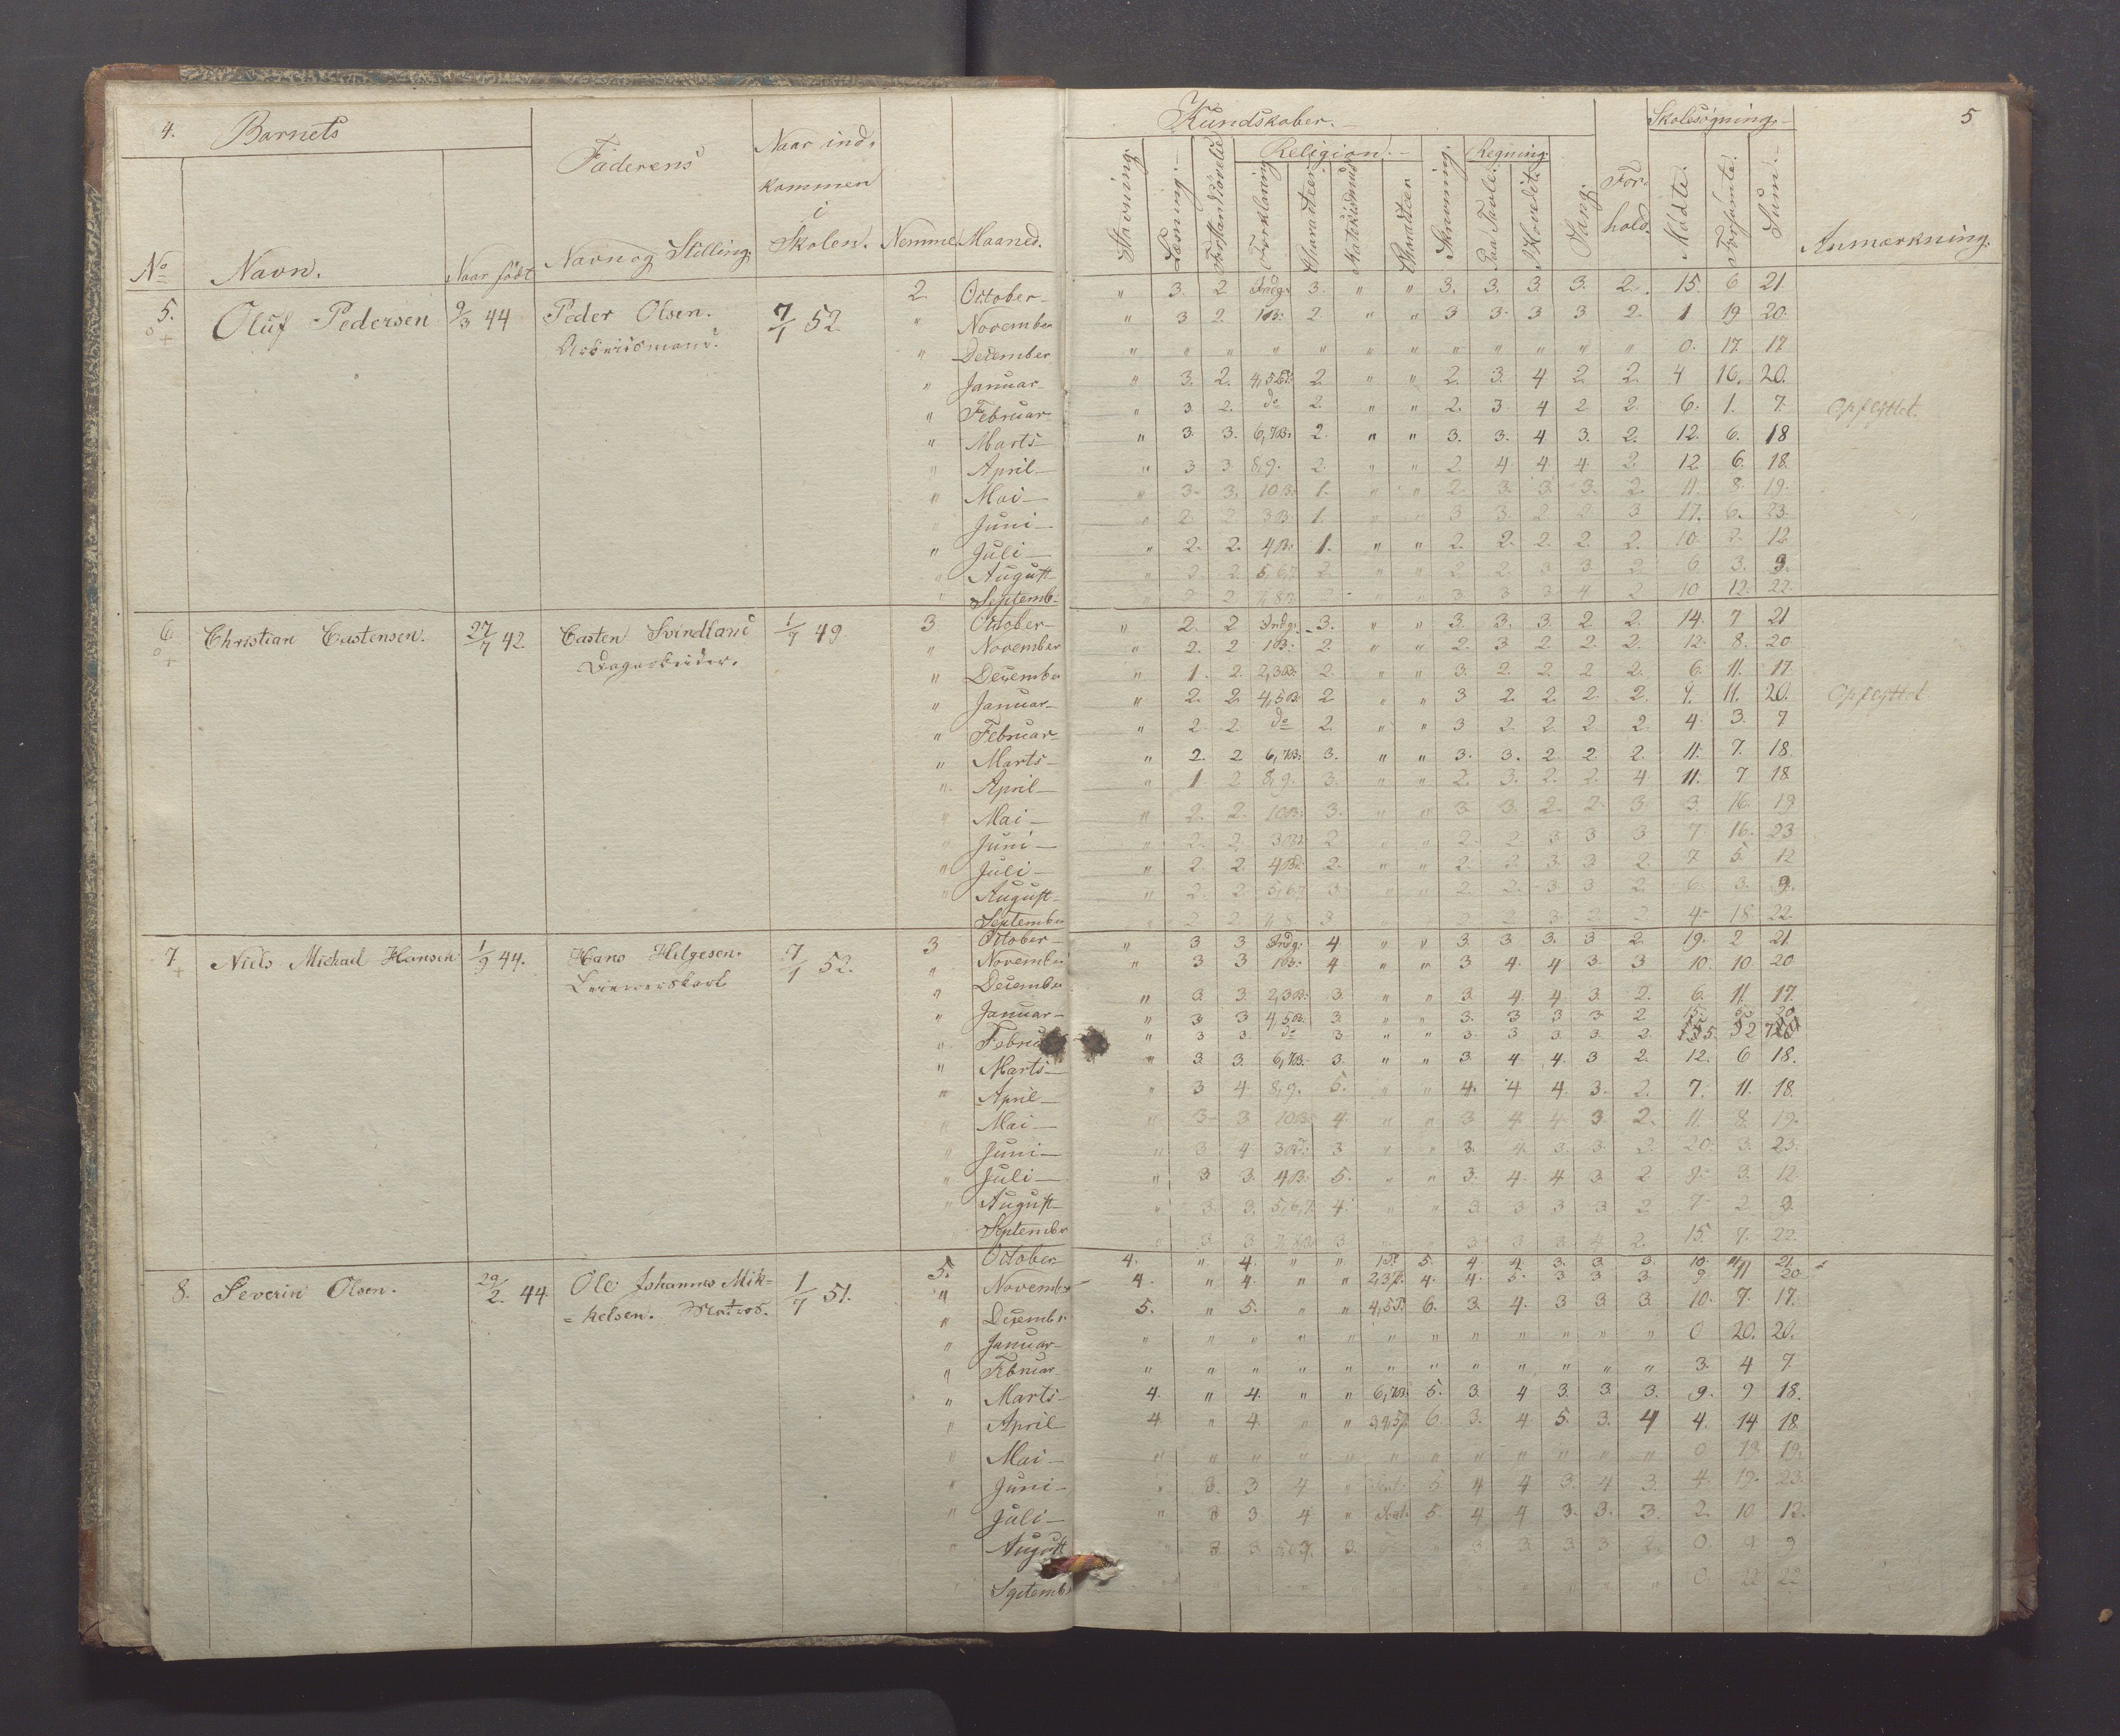 4. Barnets
Faderens
Naar ind-
kommen
i
Skolen.
Nemme
Maaned.
No
Navn.
Naar født
Navn og Stilling.
5.
Oluf Pedersen
9/3 44
Peder Olsen.
Arbeidsmand.
7/1 52
2
October
November
December
Januar
Februar
Marts
April
Mai
Juni
Juli
August
Septemb.
6.
Christian Castensen.
27/7 42
Casten Svindland
1/7 49
3
October
November
December
Januar
Februar
Marts
April
Mai
Juni
Juli
August
September
7
Niels Michael Hansen
1/9 44.
Hans Helgesen.
7/1 52.
3
October
November
December
Januar
Februar
Marts
April
Mai
Juni
Juli
August
September
8.
Severin Olsen.
29/2. 44
Ole Johannes Mik=
=kelsen. Matros.
1/7 51.
5.
October
November
December
Januar
Februar
Marts
April
Mai
Juni
Juli
August
September
Kundskaber.
Skolesøgning.
5
Religion.
Regning
Stavning.
Læsning.
Forklaring
Skrivning.
Paa Tavle.
I Hovedet.
Sang.
For-
hold.
Mødte.
Forsømte.
Sum.
Anmærkning.
" 3. 2 Indg. 3. " " 3. 3. 3. 3. 2. 15. 6 21
" 3 2. 1B: 2. " " 3 3. 3 3 2. 1 19 20.
" " " " " " " " " " " " 0. 17. 17
" 3. 2. 4,5B: 2 " " 2. 3. 4 2 2. 4 16. 20.
" 3 2. do 2. " " 2. 3 4 2 2. 6. 1. 7. Opflyttet.
" 3. 3. 6,7B: 2. " " 3. 3. 4 3. 2. 12. 6. 18
" 3 3 8,9. 2. " " 2. 4 4. 4. 2. 12 6. 18.
" 3. 3. 10B: 1. " " 2. 3. 3. 3. 2. 11. 8. 19.
" 2. 2. 3B: 1. " " 3 3. 2 2 3 17. 6. 23.
" 2. 2. 4B: 1. " " 2. 2. 2. 2. 2. 10. 2. 12
" 2. 2. 5,6,7 2. " " 2 2. 3 3 2 6 3. 9.
10 12. 22.
" 2. 2 Indg. 3. " " 3. 3. 3. 2 2. 14. 7 21
" 2. 2 1B: 2 " " 2. 3 2. 2. 2. 12. 8. 20
" 1. 2. 2,3B: 2. " " 3. 2. 2. 2 2. 6. 11. 17.
" 2. 2. 4,5B: 2 " " 3 2. 2. 2. 2. 9. 11. 20. Opflyttet
" 2. 2 do 2. " " 3 2. 2. 2. 2. 4. 3. 7
" 2. 2 6,7B: 3. " " 3. 3. 2. 2. 2. 11. 7. 18.
" 1. 2 8,9. 3. " " 2. 3. 2. 2. 4 11. 7 18
" 2. 2. 10B: 3. " " 3 3. 2. 2. 3 3. 16. 19
" 2. 2. 3B: 2 " " 2. 2 3 3 3 7 16. 23
" 2. 2. 4B: 2. " " 2. 2. 3. 3. 2. 7 5. 12
" 2. 2. 5,6,7 3. " " 2. 2. 3 3 2. 6. 3. 9.
4. 18 22.
" 3 3 Indg. 4 " " 3. 3 3. 3 2. 19. 2 21.
" 3 3 1B: 4 " " 3 4. 4 3. 3 10. 10. 20
" 3. 3. 2,3B: 3. " " 3. 4. 4. 3. 2. 6. 11. 17.
" 3 3 4,5B. 3. " " 3. 3 3 3 2 15. 5. 20
" 3 3. do 3 " " 3. 3 3. 3. 2.
" 3. 3. 6,7B. 3. " " 3 4. 4. 3 2. 12. 6 18.
" 3 4. 8,9. 5. " " 4. 4 4 3. 2. 7. 11. 18.
" 3 3 10B: 4. " " 3 4. 4. 3 2. 11. 8. 19.
" 3 4 3B: 3 " " 3. 4. 3. 3. 2. 20. 3. 23.
" 3 3. 4B: 5. " " 3. 4. 4 3 2 9. 3. 12.
" 3. 3. 5,6,7 4. " " 3. 3 3 3. 2. 7. 2 9.
15. 7. 22.
4. " 4. " " 1P. 5. 4 4. 3. 3. 3. 10. 11 21
4. " 4. " " 2,3P. 4. 4. 5. 3 3 3. 9. 11 20
5. " 5. " " 4,5P. 6. 3. 4. 3 3 3. 10. 7. 17.
" " " " " " " " " " " " 0 20. 20.
" " " " " " " " " " " " 3. 4 7.
4. " 4. " " 6,7B. 5. 3. 4 3. 3 3. 9. 9 18.
4. " 4. " " 3,4,5P. 6. 3. 4. 5. 3. 4 4. 14 18
" " " " " " " " " " " " 0 19 19.
" 3. 3 4 " 5. 4 4 3. 4 3. 4. 19. 23.
" 3 3 4 " 5. 4 4 3. 3. 3. 2. 10 12.
0 9 9
0 22 22